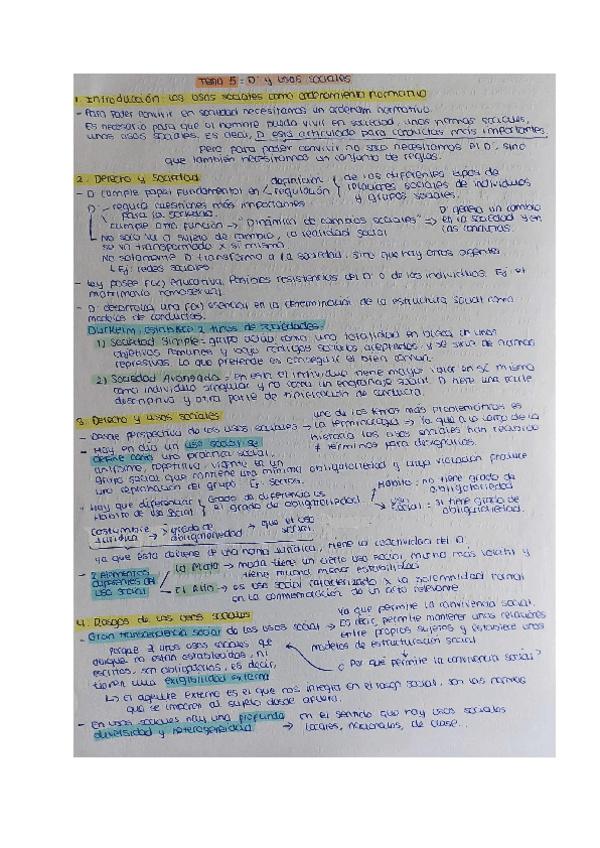 Tema 5: D° y usos sociales
1. Introducción: los usos sociales como ordenamiento normativo
- Para poder convivir en sociedad necesitamos un ordenam. normativo.
Es necesario para que el hombre pueda vivir en sociedad, unas normas sociales,
unos usos sociales, es decir, D está articulado para conductas más importantes.
Pero para poder convivir no solo necesitamos el D°, sino
que también necesitamos un conjunto de reglas.
2. Derecho y Sociedad
- D cumple papel fundamental en definición regulación de los diferentes tipos de
relaciones sociales de individuos
y grupos sociales.
D°- regula cuestiones más importantes
para la sociedad.
cumple otra función → "Dinámica de cambios sociales" ⇒ D° genera un cambio
en la sociedad y en
las conductas.
No solo va a sujeto de cambio, la realidad social
se va transformando x sí misma
No solamente D transforma a la sociedad, sino que hay otros agentes.
↳ Ej: redes sociales
- Ley posee F(x) educativa. Posibles resistencias del D° o de los individuos. Ej: el
matrimonio homosexual.
- D desarrolla una f(x) esencial en la determinación de la estructura social como
modelos de conductas.
Durkheim, establece 2 tipos de sociedades:
1) Sociedad Simple = grupo actúa como una totalidad en busca de unos
objetivos comunes y bajo códigos sociales aceptados, y se sirve de normas
represivas. Lo que pretende es conseguir el bien común.
2) Sociedad Avanzada = en esta el individuo tiene mayor valor en sí mismo
como individuo singular y no como un engranaje social. D tiene una parte
descriptiva y otra parte de numeración de conducta.
3. Derecho y usos sociales
- Desde perspectiva de los usos sociales → uno de los temas más problemáticos es
la terminología → ya que a lo largo de la
historia los usos sociales han recibido
≠ términos para designarlos.
- Hoy en día un uso social se
define como una práctica social
uniforme, repetitiva, vigente en un
grupo social que contiene una mínima obligatoriedad y cuya violación produce
una reprobación del grupo. Ej:
- Hay que diferenciar
Hábito de uso social grado de diferencia es
el grado de obligatoriedad Hábito: no tiene grado de
obligatoriedad
uso
social: sí tiene grado de
obligatoriedad.
Costumbre
jurídica → grado de
obligatoriedad → que el uso
social.
ya que ésta deviene de una norma jurídica, tiene la coactividad del D.
- 2 elementos
diferentes del
uso social La Moda → moda tiene un cierto uso social mucho más volátil y
tiene mucha menor estabilidad
El Rito → es uso social caracterizado x la solemnidad formal
en la conmemoración de un acto relevante
4. Rasgos de los usos sociales
- Gran transcendencia social de los usos social → ya que permite la convivencia social,
es decir, permite mantener unas relaciones
entre propios sujetos y establece unos
modelos de estructuración social
¿Por qué permite la convivencia social?
Porque unos usos sociales que
aunque no estén establecidos, ni
escritos, son obligatorios, es decir,
tienen una exigibilidad externa
↳ El agente externo es el que nos integra en el rasgo social, son las normas
que se imponen al sujeto desde afuera.
- En usos sociales hay una profunda
diversidad y heterogeneidad → en el sentido que hay usos sociales
locales, nacionales, de clase...